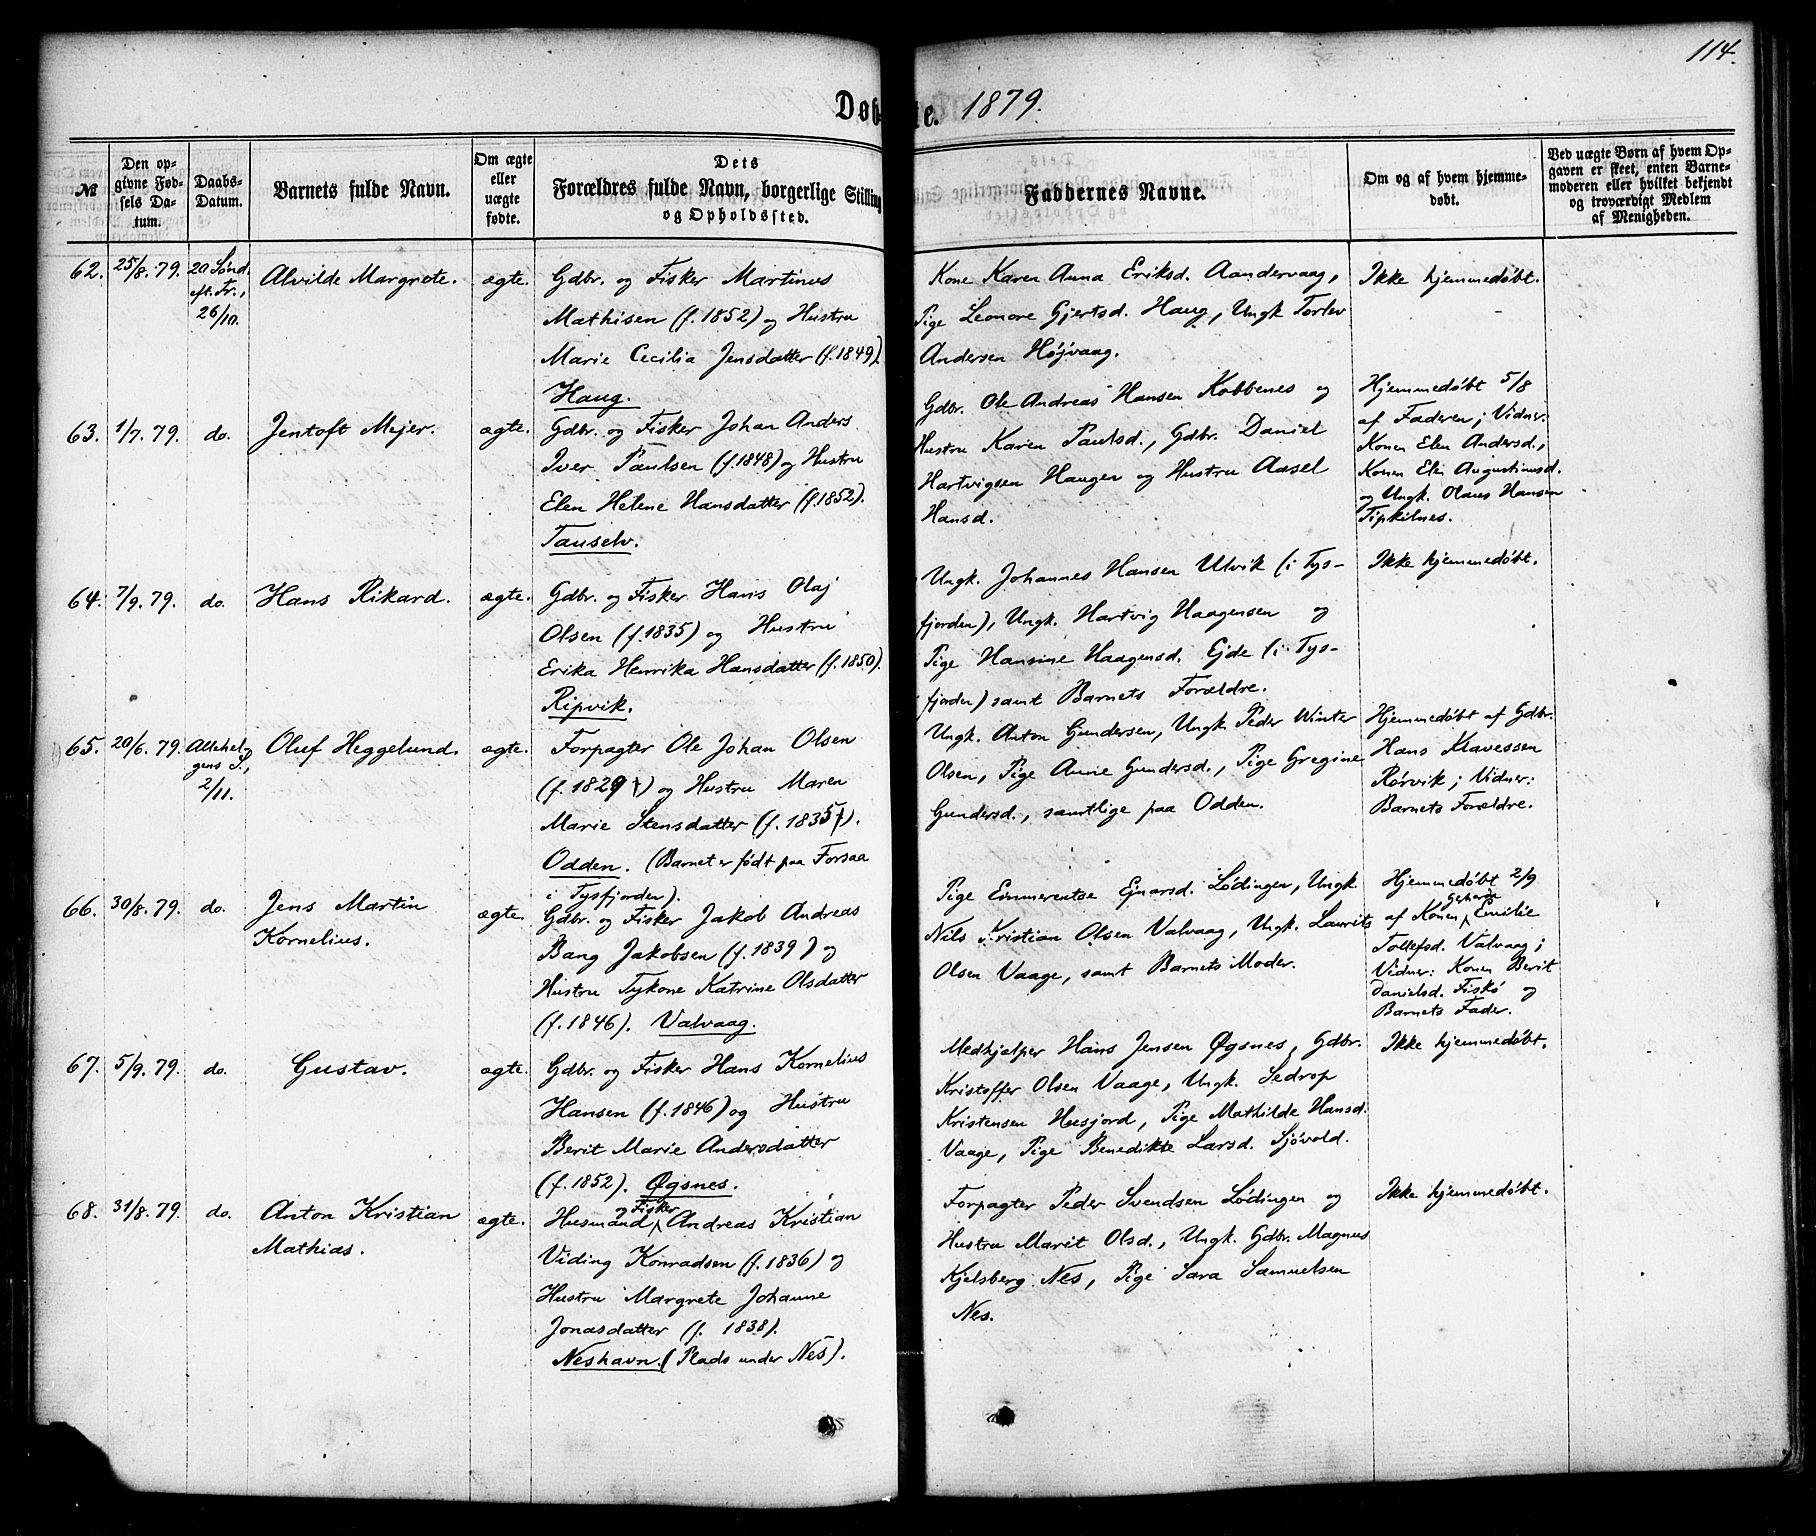 114.
Døbte. 1879.
№
Den opgivne Fødsels Datum.
Daabs-Datum.
Barnets fulde Navn.
Om ægte eller uægte fødte.
Dets Forældres fulde Navn, borgerlige Stilling og Opholdssted.
Faddernes Navne.
Om og af hvem hjemmedøbt.
Ved uægte Børn af hvem Opgaven er skeet, enten Barnemoderen eller hvilket bekjendt og troværdigt Medlem af Menigheden.
62. 25/8. 79. 20 Sønd. eft. Tr., 26/10. Alvilde Margrete. ægte.
Gdbr. og Fisker Martinus
Mathisen (f. 1852) og Hustru
Marie Cecilia Jensdatter (f. 1849).
Haug.
Kone Karen Anna Eriksd. Aandervaag,
Pige Leonore Gjertsd. Haug, Ungk. Torlev
Andersen Højvaag.
Ikke hjemmedøbt.
63. 1/7. 79. do. Jentoft Mejer. ægte.
Gdbr. og Fisker Johan Anders
Iver Paulsen (f. 1848) og Hustru
Elen Helene Hansdatter (f. 1852).
Tauselv.
Gdbr. Ole Andreas Hansen Kobbenes og
Hustru Karen Paulsd., Gdbr. Daniel
Hartvigsen Haugen og Hustru Aasel
Hansd.
Hjemmedøbt 5/8
af Faderen; Vidner:
Konen Elen Andersd.,
Konen Elen Augustinusd.
og Ungk. Olaus Hansen
Tipkilnes.
64. 7/9. 79. do. Hans Rikard. ægte.
Gdbr. og Fisker Hans Olaj
Olsen (f. 1835) og Hustru
Erika Henrika Hansdatter (f. 1850).
Ripvik.
Ungk. Johannes Hansen Ulvik (i Tys-
fjorden), Ungk. Hartvig Haagensen og
Pige Hansine Haagensd. Ejde (i Tys-
fjorden) samt Barnets Forældre.
Ikke hjemmedøbt.
65. 20/6. 79. Allehelgens S., 2/11. Oluf Heggelund. ægte.
Forpagter Ole Johan Olsen
(f. 1829) og Hustru Maren
Marie Stensdatter (f. 1835).
Odden. (Barnet er født paa Forsaa
i Tysfjorden).
Ungk. Anton Gundersen, Ungk. Peder Winter
Olsen, Pige Anne Gundersd., Pige Gregine
Gundersd., samtlige paa Odden.
Hjemmedøbt af Gdbr.
Hans Klavessen
Rørvik; Vidner:
Barnets Forældre.
66. 30/8. 79. do. Jens Martin
Kornelius. ægte.
Gdbr. og Fisker Jakob Andreas
Bang Jakobsen (f. 1839) og
Hustru Tykone Katrine Olsdatter
(f. 1846). Valvaag.
Pige Emmerentse Ejnarsd. Lødingen, Ungk.
Nils Kristian Olsen Valvaag, Ungk. Laurits
Olsen Vaage, samt Barnets Moder.
Hjemmedøbt 2/9
af Konen Emilie
Tollefsd. Valvaag;
Vidner: Konen Berit
Danielsd. Fiskø og
Barnets Fader.
67. 5/9. 79. do. Gustav. ægte.
Gdbr. og Fisker Hans Kornelius
Hansen (f. 1846) og Hustru
Berit Marie Andersdatter
(f. 1852). Øgsnes.
Medhjælper Hans Jensen Øgsnes, Gdbr.
Kristoffer Olsen Vaage, Ungk. Sedrop
Kristensen Husjord, Pige Mathilde Hansd.
Vaage, Pige Benedikte Larsd. Sjøvold.
Ikke hjemmedøbt.
68. 31/8. 79. do. Anton Kristian
Mathias. ægte.
Husmand og Fisker Andreas Kristian
Viding Konradsen (f. 1836) og
Hustru Margrete Johanne
Jonasdatter (f. 1838).
Neshavn. (Plads under Nes).
Forpagter Peder Svendsen Lødingen og
Hustru Marit Olsd., Ungk. Gdbr. Magnus
Kjelsberg Nes, Pige Sara Samuelsen
Nes.
Ikke hjemmedøbt.